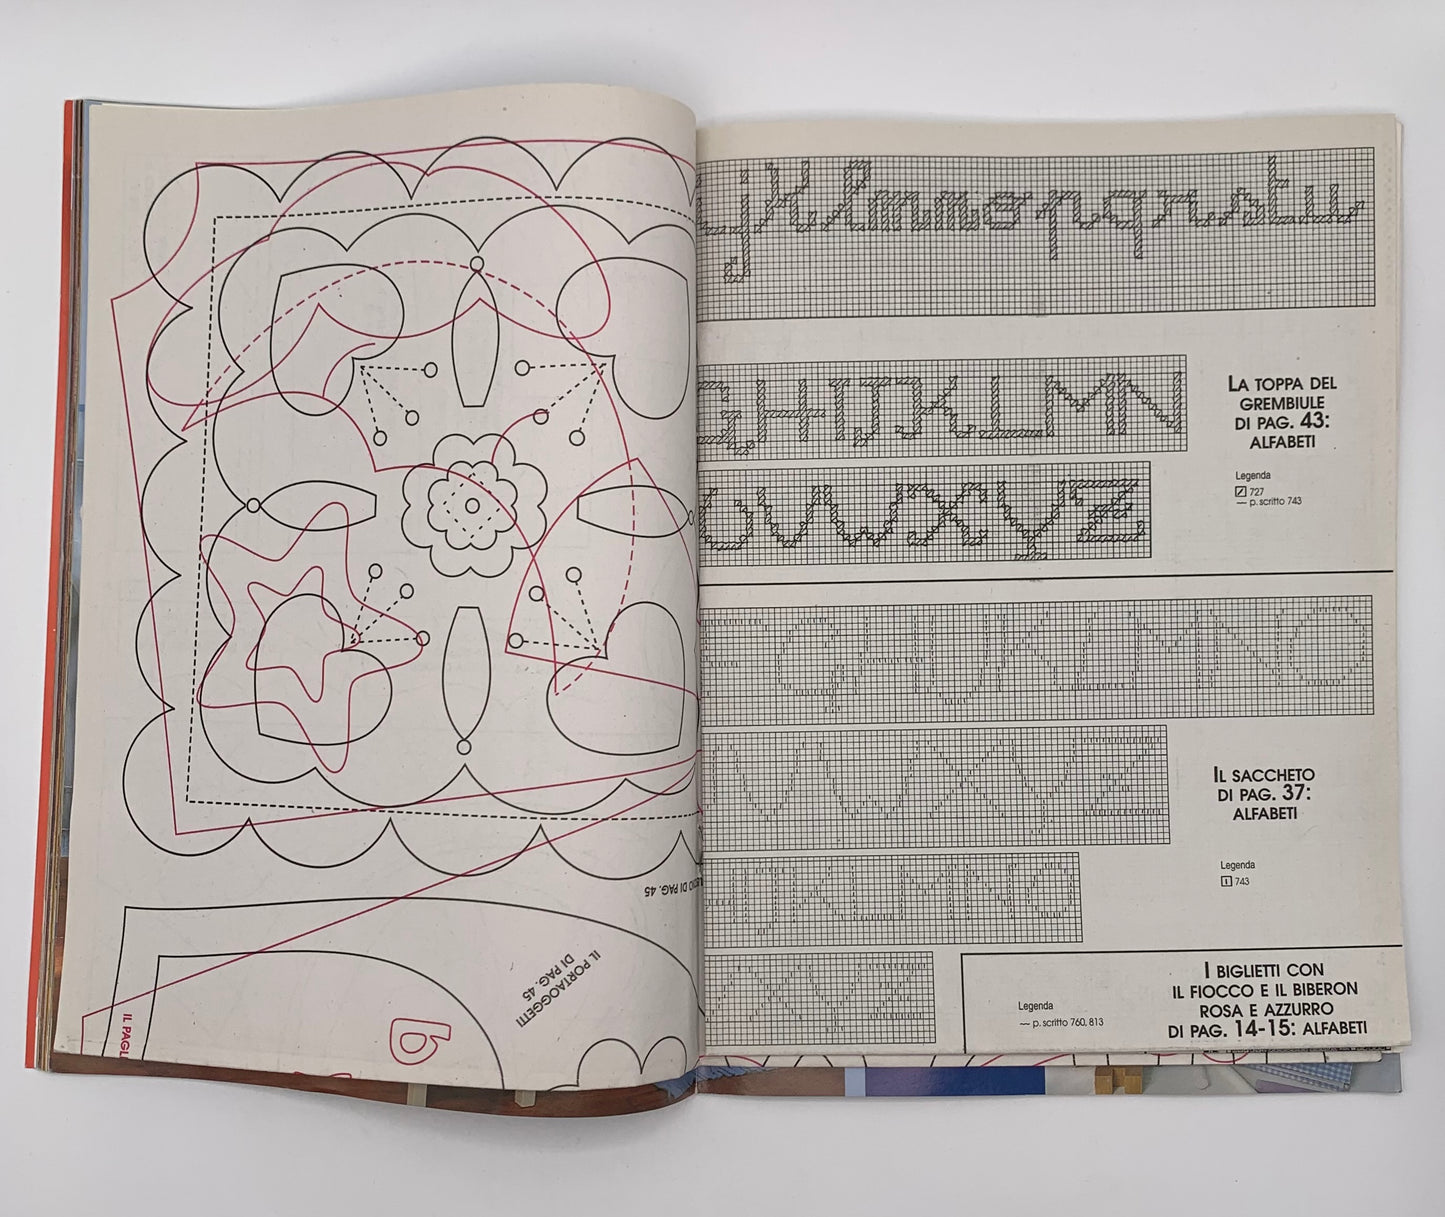 IL PORTAOGGETTI
DI PAG. 45
DI PAG. 45
b
jklmnopqrstu
GHIJKLMN
UVWXYZ
LA TOPPA DEL
GREMBIULE
DI PAG. 43:
ALFABETI
Legenda
727
p. scritto 743
GHIJKLMNO
UVWXYZ
IL SACCHETO
DI PAG. 37:
ALFABETI
Legenda
743
HIJKLMNO
XYZ
I BIGLIETTI CON
IL FIOCCO E IL BIBERON
ROSA E AZZURRO
DI PAG. 14-15: ALFABETI
Legenda
p. scritto 760, 813